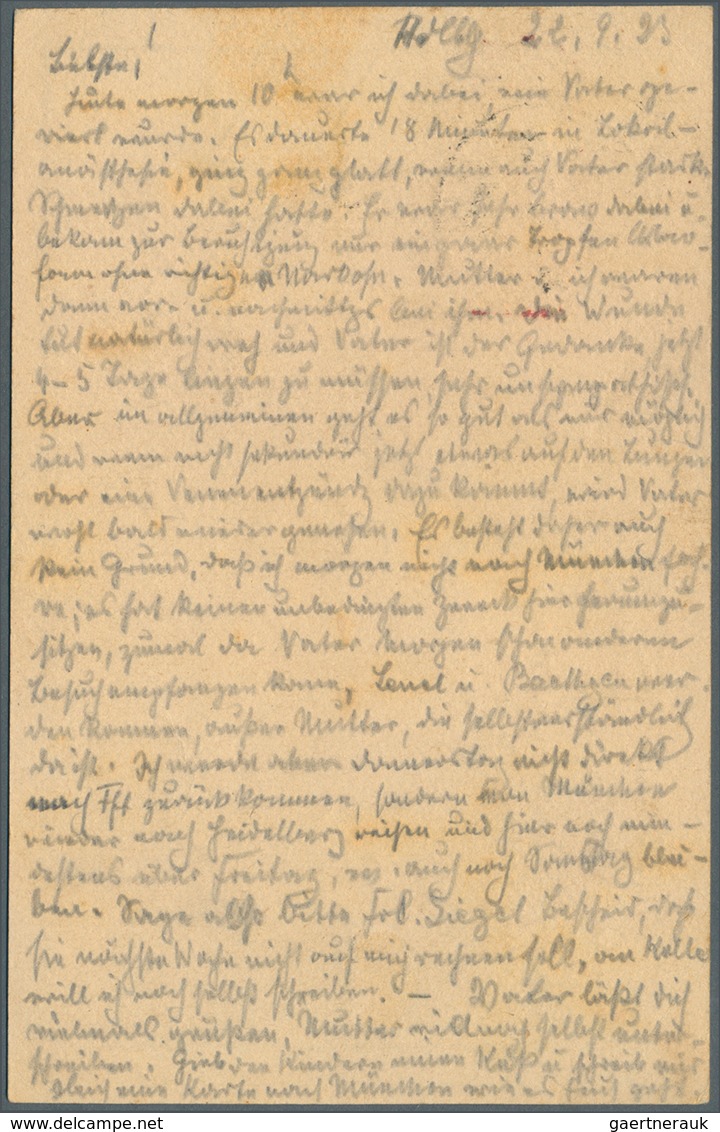 Hdlbg 22. 9. 23
Liebste!
Heute morgen 10 h war ich dabei, wie Vater ope-
riert wurde. Es dauerte 18 Minuten in Lokal-
anästhesie, ging ganz glatt, wenn auch Vater stark
Schmerzen dabei hatte. Er war sehr brav dabei u.
bekam zur Beruhigung nur ein paar Tropfen Chloro-
form ohne richtige Narkose. Mutter u. ich waren
dann vor- u. nachmittgs bei ihm. Die Wunde
tut natürlich weh und Vater ist der Gedanke, jetzt
4-5 Tage liegen zu müssen, sehr unsympathisch.
Aber im allgemeinen geht es so gut als nur möglich
und wenn nicht sekundär jetzt etwas auf den Lungen
oder eine Venenentzündg dazu kommt, wird Vater
wohl bald wieder genesen. Es besteht daher auch
kein Grund, daß ich morgen nicht nach München fah-
re; es hat keinen unbedingten Zweck hier herumzu-
sitzen, zumal da Vater morgen schon anderen
Besuch empfangen kann, Lenel u. wer-
den kommen, außer Mutter, die selbstverständlich
da ist. Ich werde aber Donnerstag nicht direkt
nach Fft zurückkommen, sondern von München
wieder nach Heidelberg reisen und hier noch min-
destens über Freitag, ev. auch noch Samstag blei-
ben. Sage also bitte Frl. Siegel Bescheid, daß
sie nächste Woche nicht auf mich rechnen soll, an
will ich noch selbst schreiben. — Vater läßt dich
vielmals grüßen, Mutter will noch selbst unter-
schreiben. Gieb den Kindern einen Kuß u schreib mir
gleich eine Karte nach München wie es Euch geht.
gaertnerauk